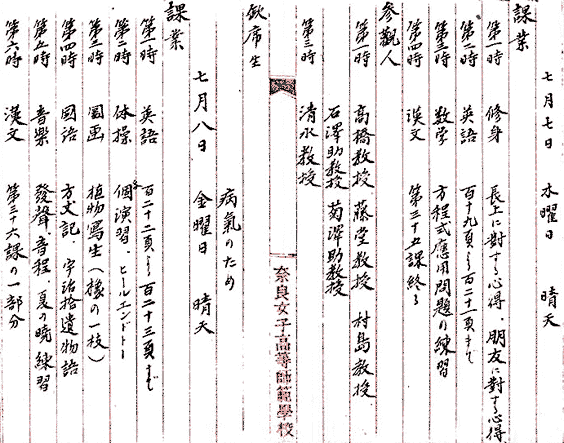 七月七日 木曜日 晴天
課業
第一時 修身 長上に対する心得、朋友に対する心得
第二時 英語 百十九頁より百二十一頁まで
第三時 数学 方程式應用問題の練習
第四時 漢文 第三十五課終る
参観人
第一時 高橋教授 藤堂教授 村島教授
石澤助教授 菊澤助教授
第三時 清水教授
奈良女子高等師範學校
欽席生
病氣のため
七月八日 金曜日 晴天
課業
第一時 英語 百二十二頁より百二十三頁まで
第二時 体操 個演習、ヒールエンドトー
第三時 圖画 植物寫生(様の一枝)
第四時 國語 方丈記、宇治拾遺物語
第五時 音樂 發聲、音程、夏の暁練習
第六時 漢文 第三十六課の一部分